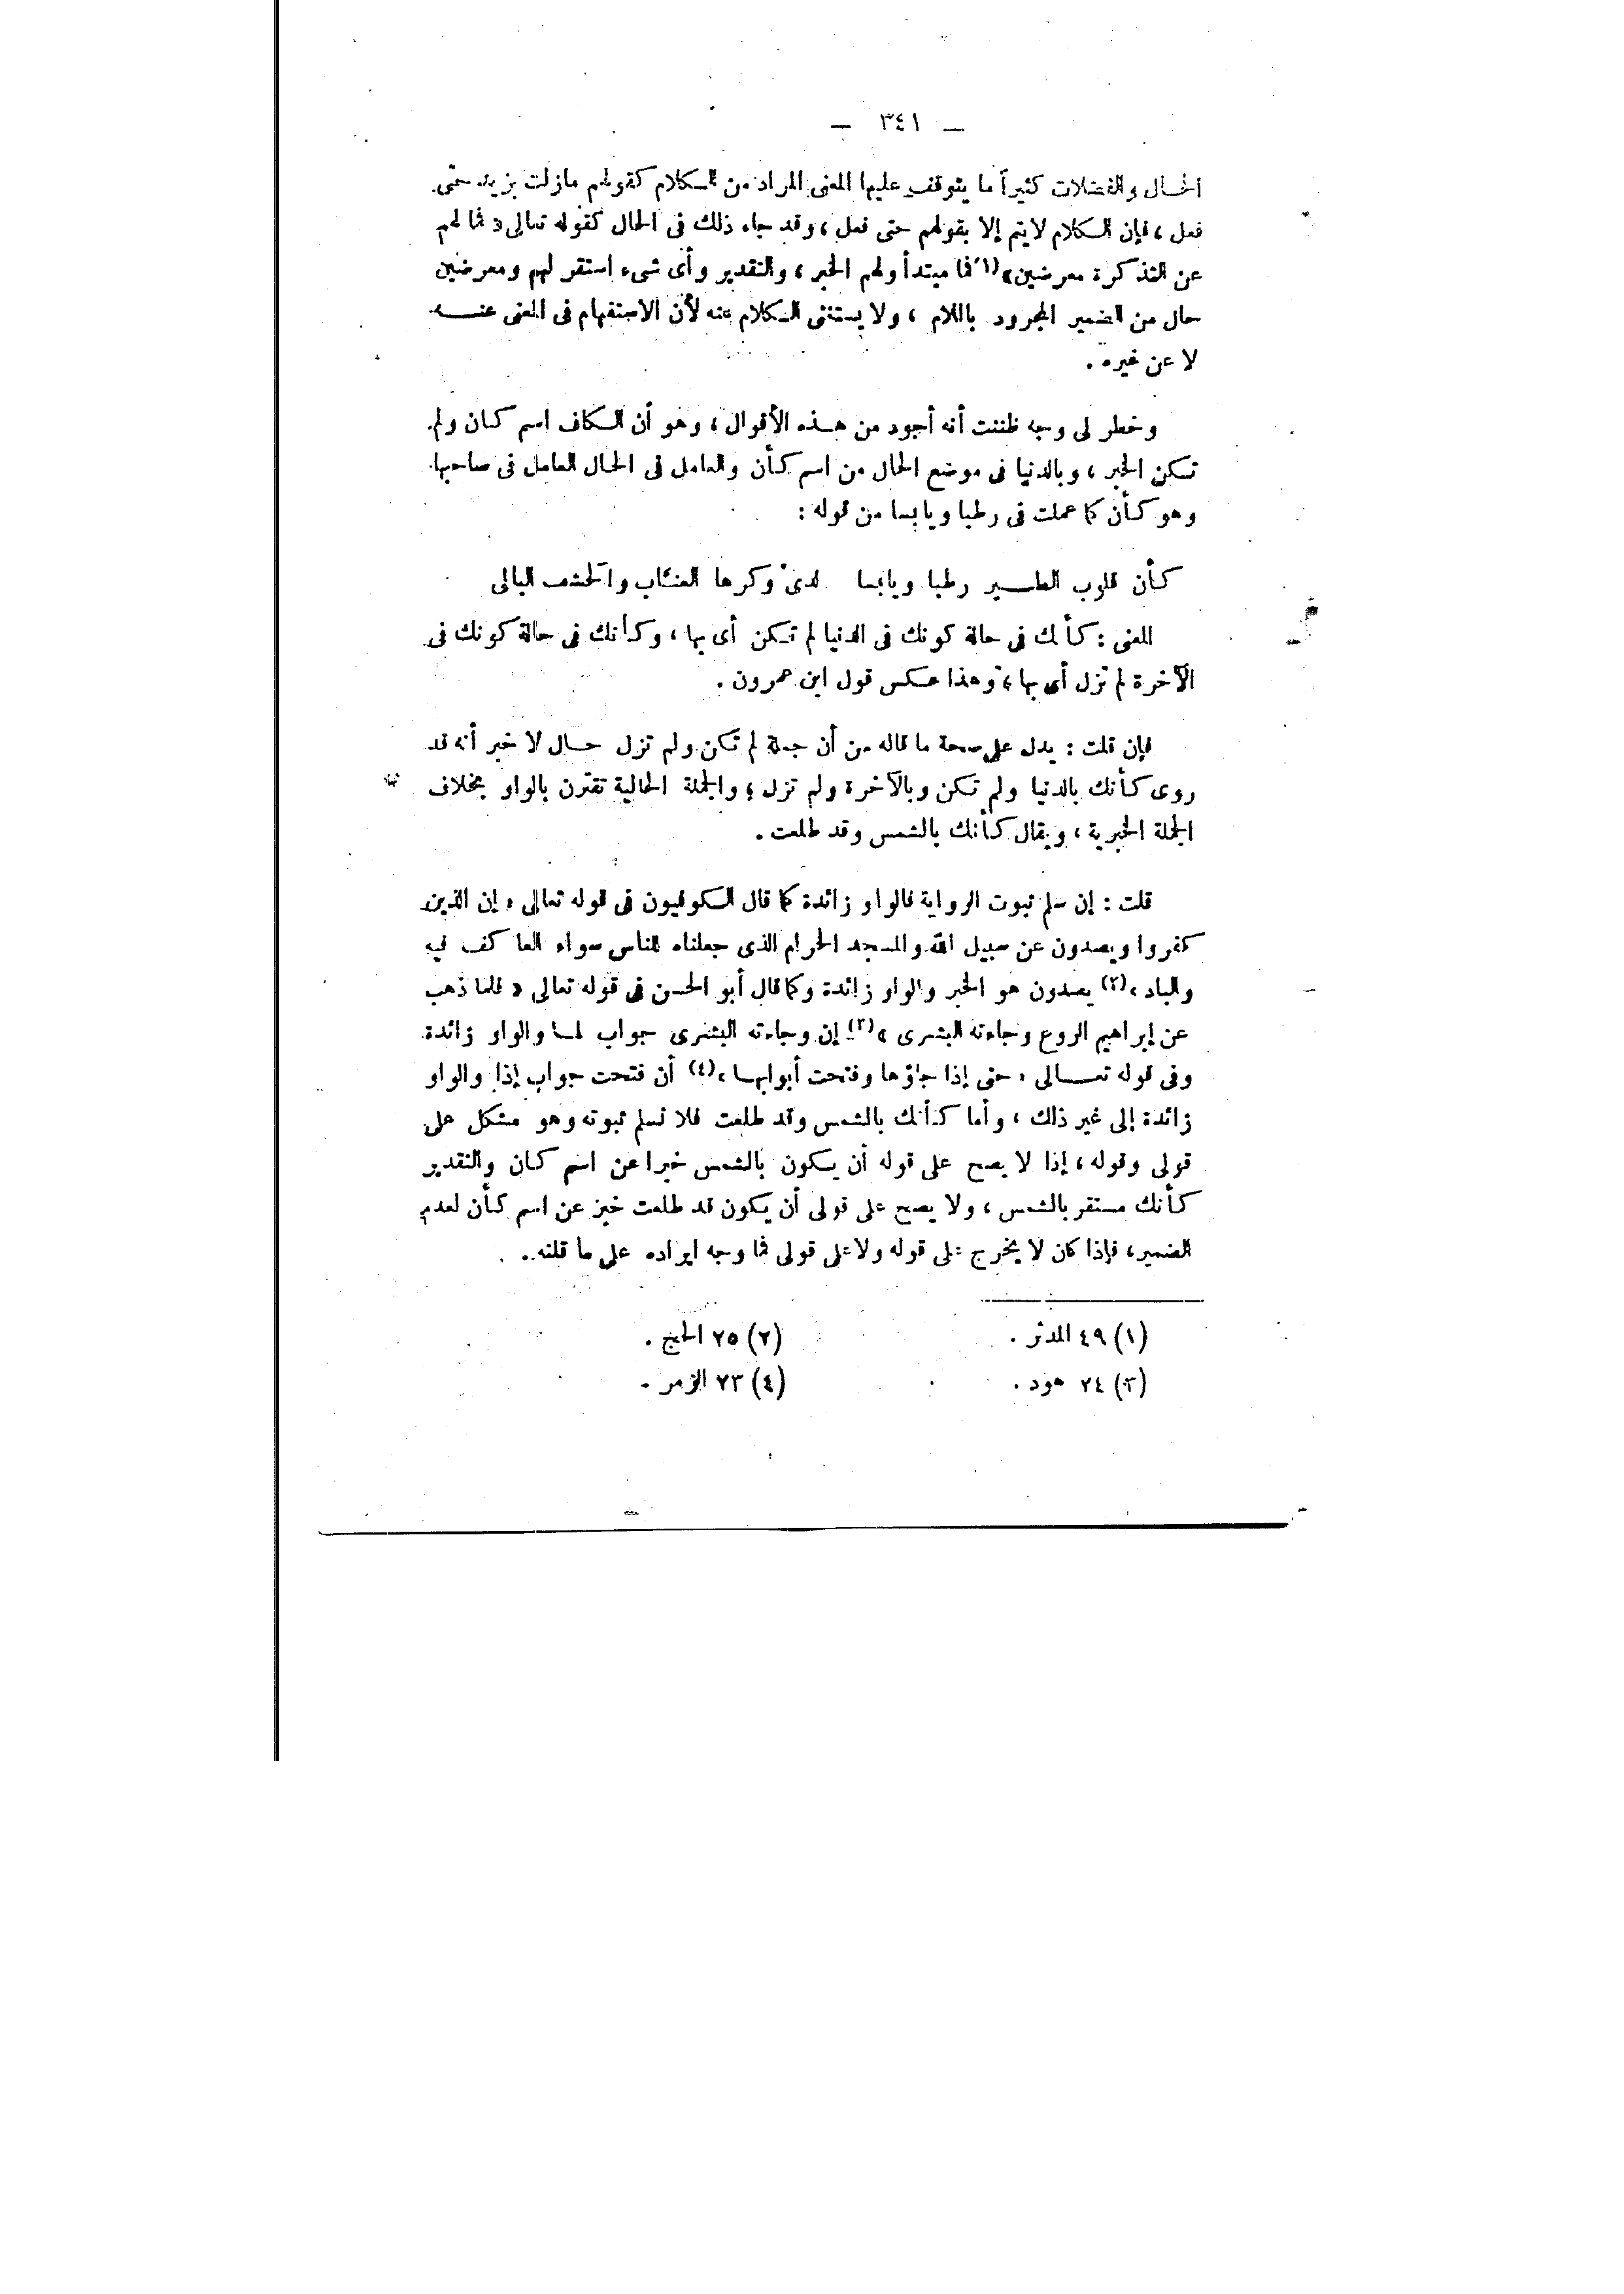 — ٣٤١ —
الحال والفضلات كثيراً ما يتوقف عليها المعنى المراد من الكلام كقولهم مازلت بزيد حتى
فعل ، فإن الكلام لا يتم إلا بقولهم حتى فعل ، وقد جاء ذلك فى الحال كقوله تعالى « فما لهم
عن التذكرة معرضين »(١) فما مبتدأ ولهم الخبر ، والتقدير وأى شىء استقر لهم ومعرضين
حال من الضمير المجرود باللام ، ولا يستغنى الكلام عنه لأن الاستفهام فى المعنى عنـــه
لا عن غيره .
وخطر لى وجه ظننت أنه أجود من هـذه الأقوال ، وهو أن الكاف اسم كـان ولم
تكن الخبر ، وبالدنيا فى موضع الحال من اسم كـأن والعامل فى الحال العامل فى صاحبها
وهو كـأن كما عملت فى رطبا ويابسا من قوله :
كـأن قلوب الطـــير رطبا ويابسا لدى وكرها العنـّاب والحشف البالى
المعنى : كـأنك فى حالة كونك فى الدنيا لم تكن أى بها ، وكـأنك فى حالة كونك فى
الآخرة لم تزل أى بها ، وهذا عكس قول ابن عمرون .
فإن قلت : يدل على صحة ما قاله من أن جملة لم تكن ولم تزل حـال لا خبر أنه قد
روى كـأنك بالدنيا ولم تكن وبالآخرة ولم تزل ؛ والجملة الحالية تقترن بالواو بخلاف
الجملة الخبرية ، ويقال كـأنك بالشمس وقد طلعت .
قلت : إن سلم ثبوت الرواية فالواو زائدة كما قال الكوفيون فى قوله تعالى « إن الذين
كفروا ويصدون عن سبيل الله والمسجد الحرام الذى جعلناه للناس سواء العاكف فيه
والباد »(٢) يصدون هو الخبر والواو زائدة وكما قال أبو الحسن فى قوله تعالى « فلما ذهب
عن إبراهيم الروع وجاءته البشرى »(٣) إن وجاءته البشرى جواب لمـا والواو زائدة
وفى قوله تعـــالى « حتى إذا جاؤها وفتحت أبوابهـا »(٤) أن فتحت جواب إذا والواو
زائدة إلى غير ذلك ، وأما كـأنك بالشمس وقد طلعت فلا نسلم ثبوته وهو مشكل على
قولى وقوله ، إذا لا يصح على قوله أن يكون بالشمس خبرا عن اسم كـان والتقدير
كـأنك مستقر بالشمس ، ولا يصح على قولى أن يكون قد طلعت خبز عن اسم كـأن لعدم
الضمير ، فإذا كان لا يخرج على قوله ولا على قولى فما وجه ايراده على ما قلته ..
(١) ٤٩ المدثر . (٢) ٢٥ الحج .
(٣) ٢٤ هود . (٤) ٧٣ الزمر .